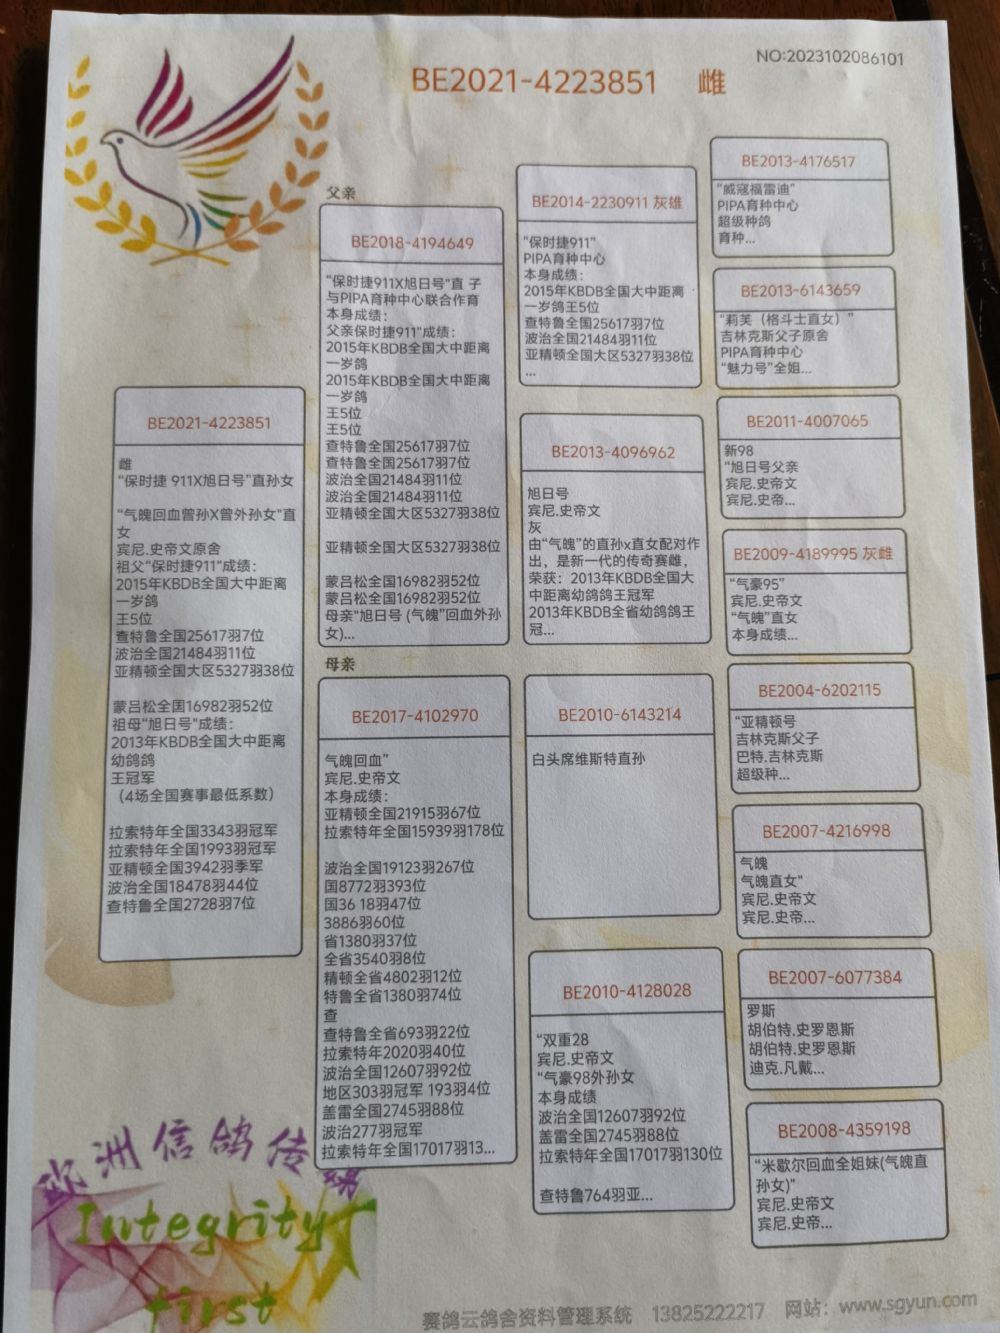 NO:2023102086101
BE2021-4223851 雌
BE2021-4223851
雌
“保时捷 911X旭日号”直孙女
“气魄回血曾孙X曾外孙女”直
女
宾尼.史帝文原舍
祖父“保时捷911”成绩：
2015年KBDB全国大中距离
一岁鸽
王5位
查特鲁全国25617羽7位
波治全国21484羽11位
亚精顿全国大区5327羽38位
蒙吕松全国16982羽52位
祖母“旭日号”成绩：
2013年KBDB全国大中距离
幼鸽鸽
王冠军
（4场全国赛事最低系数）
拉索特年全国3343羽冠军
拉索特年全国1993羽冠军
亚精顿全国3942羽季军
波治全国18478羽44位
查特鲁全国2728羽7位
父亲
BE2018-4194649
“保时捷911X旭日号”直 子
与PIPA育种中心联合作育
本身成绩：
父亲保时捷911”成绩：
2015年KBDB全国大中距离
一岁鸽
2015年KBDB全国大中距离
一岁鸽
王5位
王5位
查特鲁全国25617羽7位
查特鲁全国25617羽7位
波治全国21484羽11位
波治全国21484羽11位
亚精顿全国大区5327羽38位
亚精顿全国大区5327羽38位
蒙吕松全国16982羽52位
蒙吕松全国16982羽52位
母亲“旭日号 (气魄”回血外孙
女)...
母亲
BE2017-4102970
气魄回血”
宾尼.史帝文
本身成绩：
亚精顿全国21915羽67位
拉索特年全国15939羽178位
波治全国19123羽267位
国8772羽393位
国36 18羽47位
3886羽60位
省1380羽37位
全省3540羽8位
精顿全省4802羽12位
特鲁全省1380羽74位
查
查特鲁全省693羽22位
拉索特年2020羽40位
波治全国12607羽92位
地区303羽冠军 193羽4位
盖雷全国2745羽88位
波治277羽冠军
拉索特年全国17017羽13...
BE2014-2230911 灰雄
“保时捷911”
PIPA育种中心
本身成绩：
2015年KBDB全国大中距离
一岁鸽王5位
查特鲁全国25617羽7位
波治全国21484羽11位
亚精顿全国大区5327羽38位
...
BE2013-4096962
旭日号
宾尼.史帝文
灰
由“气魄”的直孙x直女配对作
出，是新一代的传奇赛雌，
荣获：2013年KBDB全国大
中距离幼鸽鸽王冠军
2013年KBDB全省幼鸽鸽王
冠...
BE2010-6143214
白头席维斯特直孙
BE2010-4128028
“双重28
宾尼.史帝文
“气豪98外孙女
本身成绩
波治全国12607羽92位
盖雷全国2745羽88位
拉索特年全国17017羽130位
查特鲁764羽亚...
BE2013-4176517
“威寇福雷迪”
PIPA育种中心
超级种鸽
育种...
BE2013-6143659
“莉芙（格斗士直女）”
吉林克斯父子原舍
PIPA育种中心
“魅力号”全姐...
BE2011-4007065
新98
“旭日号父亲
宾尼.史帝文
宾尼.史帝...
BE2009-4189995 灰雌
“气豪95”
宾尼.史帝文
“气魄”直女
本身成绩...
BE2004-6202115
“亚精顿号
吉林克斯父子
巴特.吉林克斯
超级种...
BE2007-4216998
气魄
气魄直女”
宾尼.史帝文
宾尼.史帝...
BE2007-6077384
罗斯
胡伯特.史罗恩斯
胡伯特.史罗恩斯
迪克.凡戴...
BE2008-4359198
“米歇尔回血全姐妹(气魄直
孙女)”
宾尼.史帝文
宾尼.史帝...
欧洲信鸽传媒
Integrity
first
赛鸽云鸽舍资料管理系统 13825222217 网站：www.sgyun.com